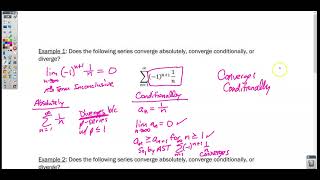 Example 1: Does the following series converge absolutely, converge conditionally, or
diverge?
lim n→∞ (-1)^{n+1} 1/n = 0
nth Term Inconclusive
∞ ∑ n=1 (-1)^{n+1} 1/n
Converges
Conditionally
Absolutely
∞ ∑ n=1 1/n
Diverges b/c
p-series
w/ p ≤ 1
Conditionally
a_n = 1/n
lim n→∞ a_n = 0 ✓
a_n ≥ a_{n+1} for n ≥ 1 ✓
So by AST ∞ ∑ n=1 (-1)^{n+1} 1/n
converges
Example 2: Does the following series converge absolutely, converge conditionally, or
diverge?